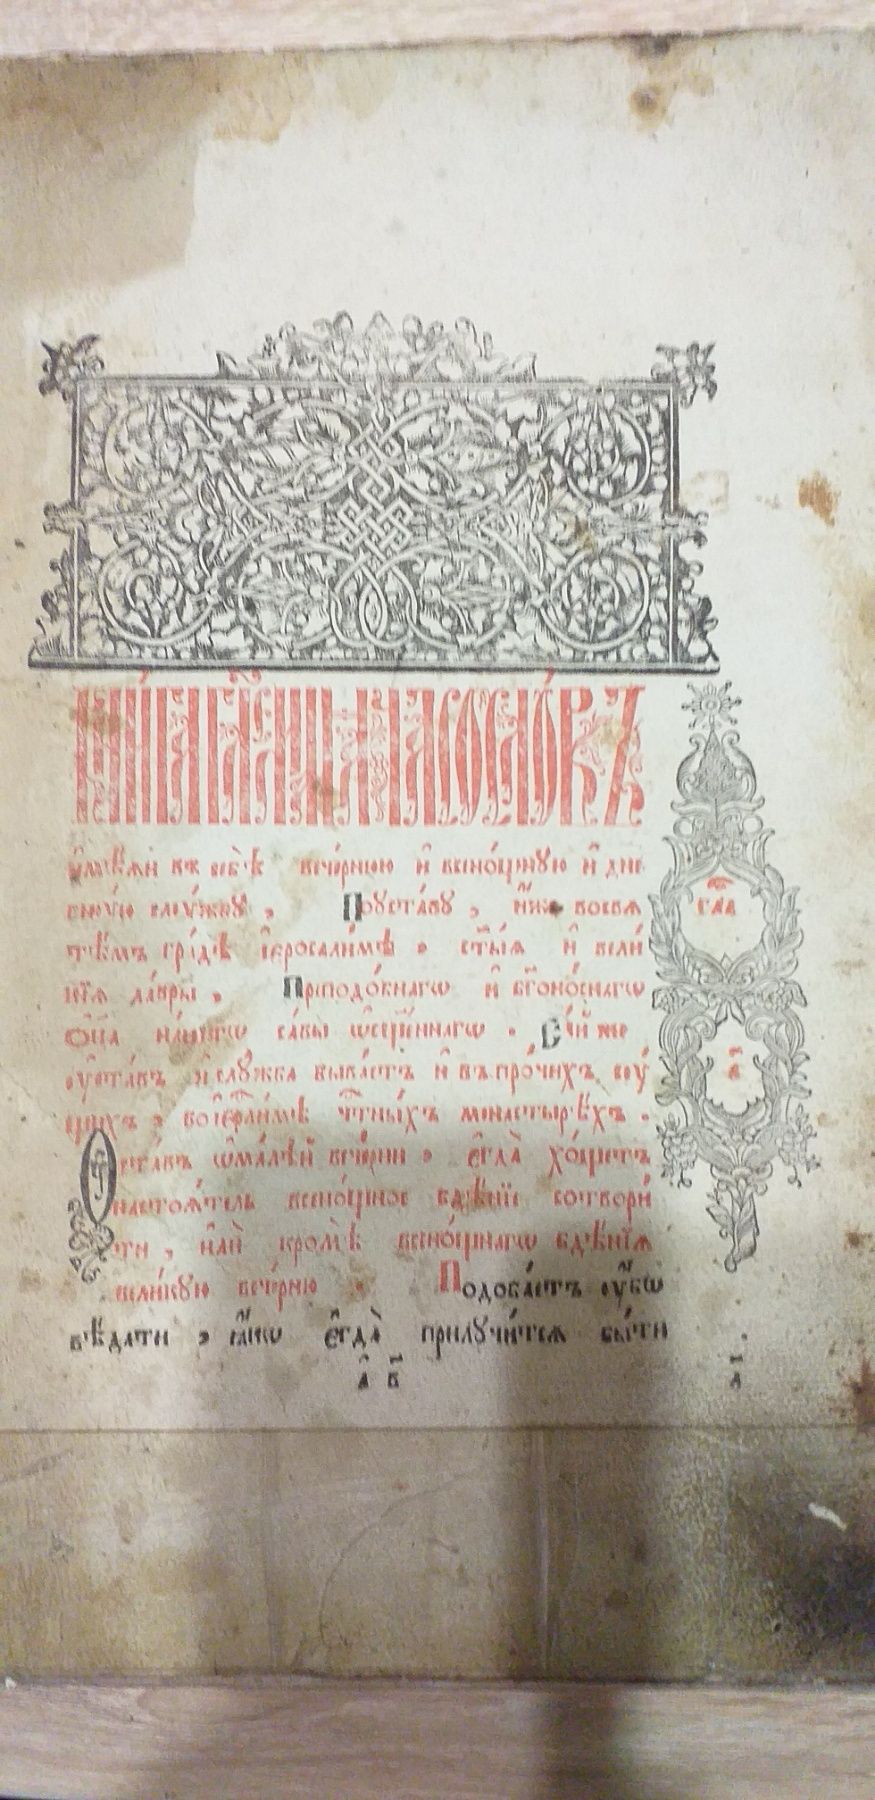 КНИ́ГА ГЛ҃ЕМАѦ ЧАСОСЛО́ВЪ
и҆мѣ́ѧй въ себѣ̀ вече́рнюю и҆ всено́щную и҆ дне
вну́ю слꙋ́жбꙋ , По ᲂу҆ста́вꙋ , и҆́же во свѧ
тѣ́мъ гра́дѣ і҆еросали́мѣ , ст҃ы́ѧ и҆ вели́
кіѧ ла́вры , Преподо́бнагѡ и҆ бг҃оно́снагѡ
ѻ҆ц҃а̀ на́шегѡ са́вы ѡ҆сщ҃е́ннагѡ . Са́й же
ᲂу҆ста́въ и҆ слу́жба быва́етъ и҆ въ про́чихъ сꙋ́
щихъ , во і҆ерⷭ҇ли́мѣ чⷭ҇тны́хъ монастырѣ́хъ .
Оу҆ста́въ ѡ҆ ма́лѣй вече́рни , є҆гда̀ хо́щетъ
настоѧ́тель всено́щное бдѣ́ніе сотвори́
ти , и҆лѝ кромѣ̀ всено́щнагѡ бдѣ́ніѧ
вели́кую вече́рню . Подоба́етъ ᲂу҆́бѡ
вѣ́дати , ꙗ҆́кѡ є҆гда̀ прилꙋчи́тсѧ бы́ти
гла́в
а҃
а҃ в҃
а҃